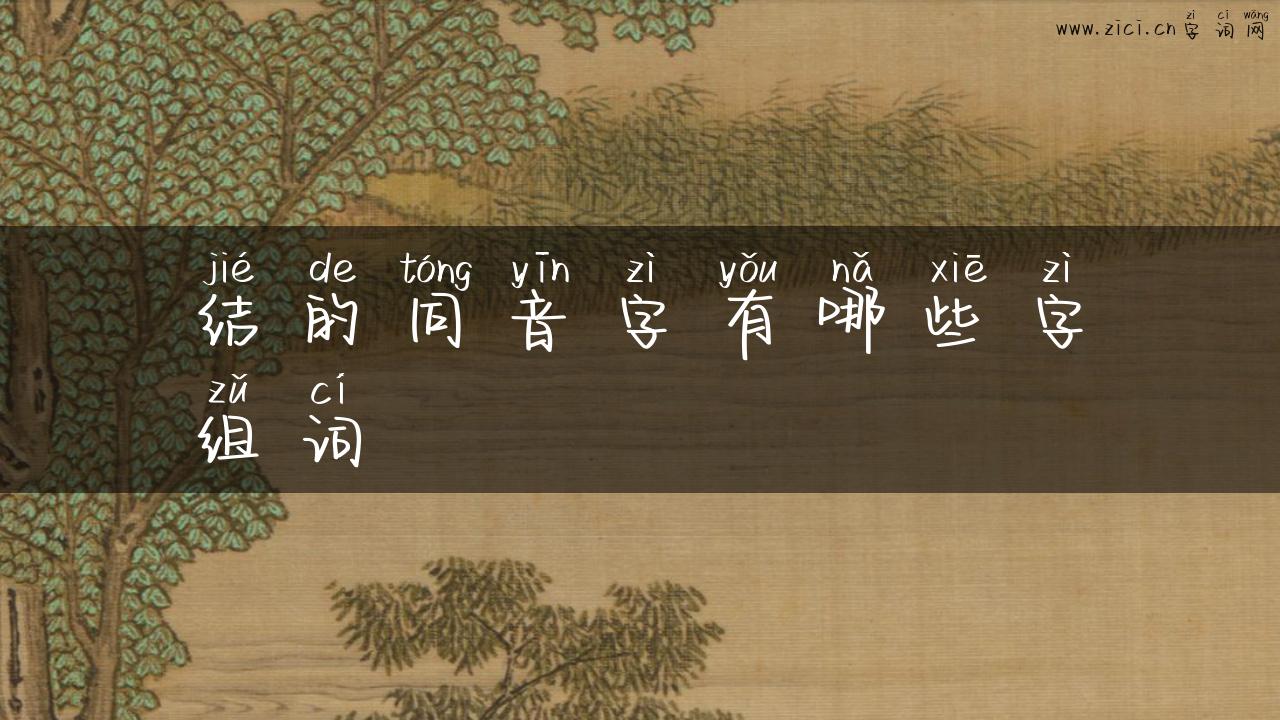 zì cí wǎng
www.zici.cn字词网
jié de tóng yīn zì yǒu nǎ xiē zì
结的同音字有哪些字
zǔ cí
组词